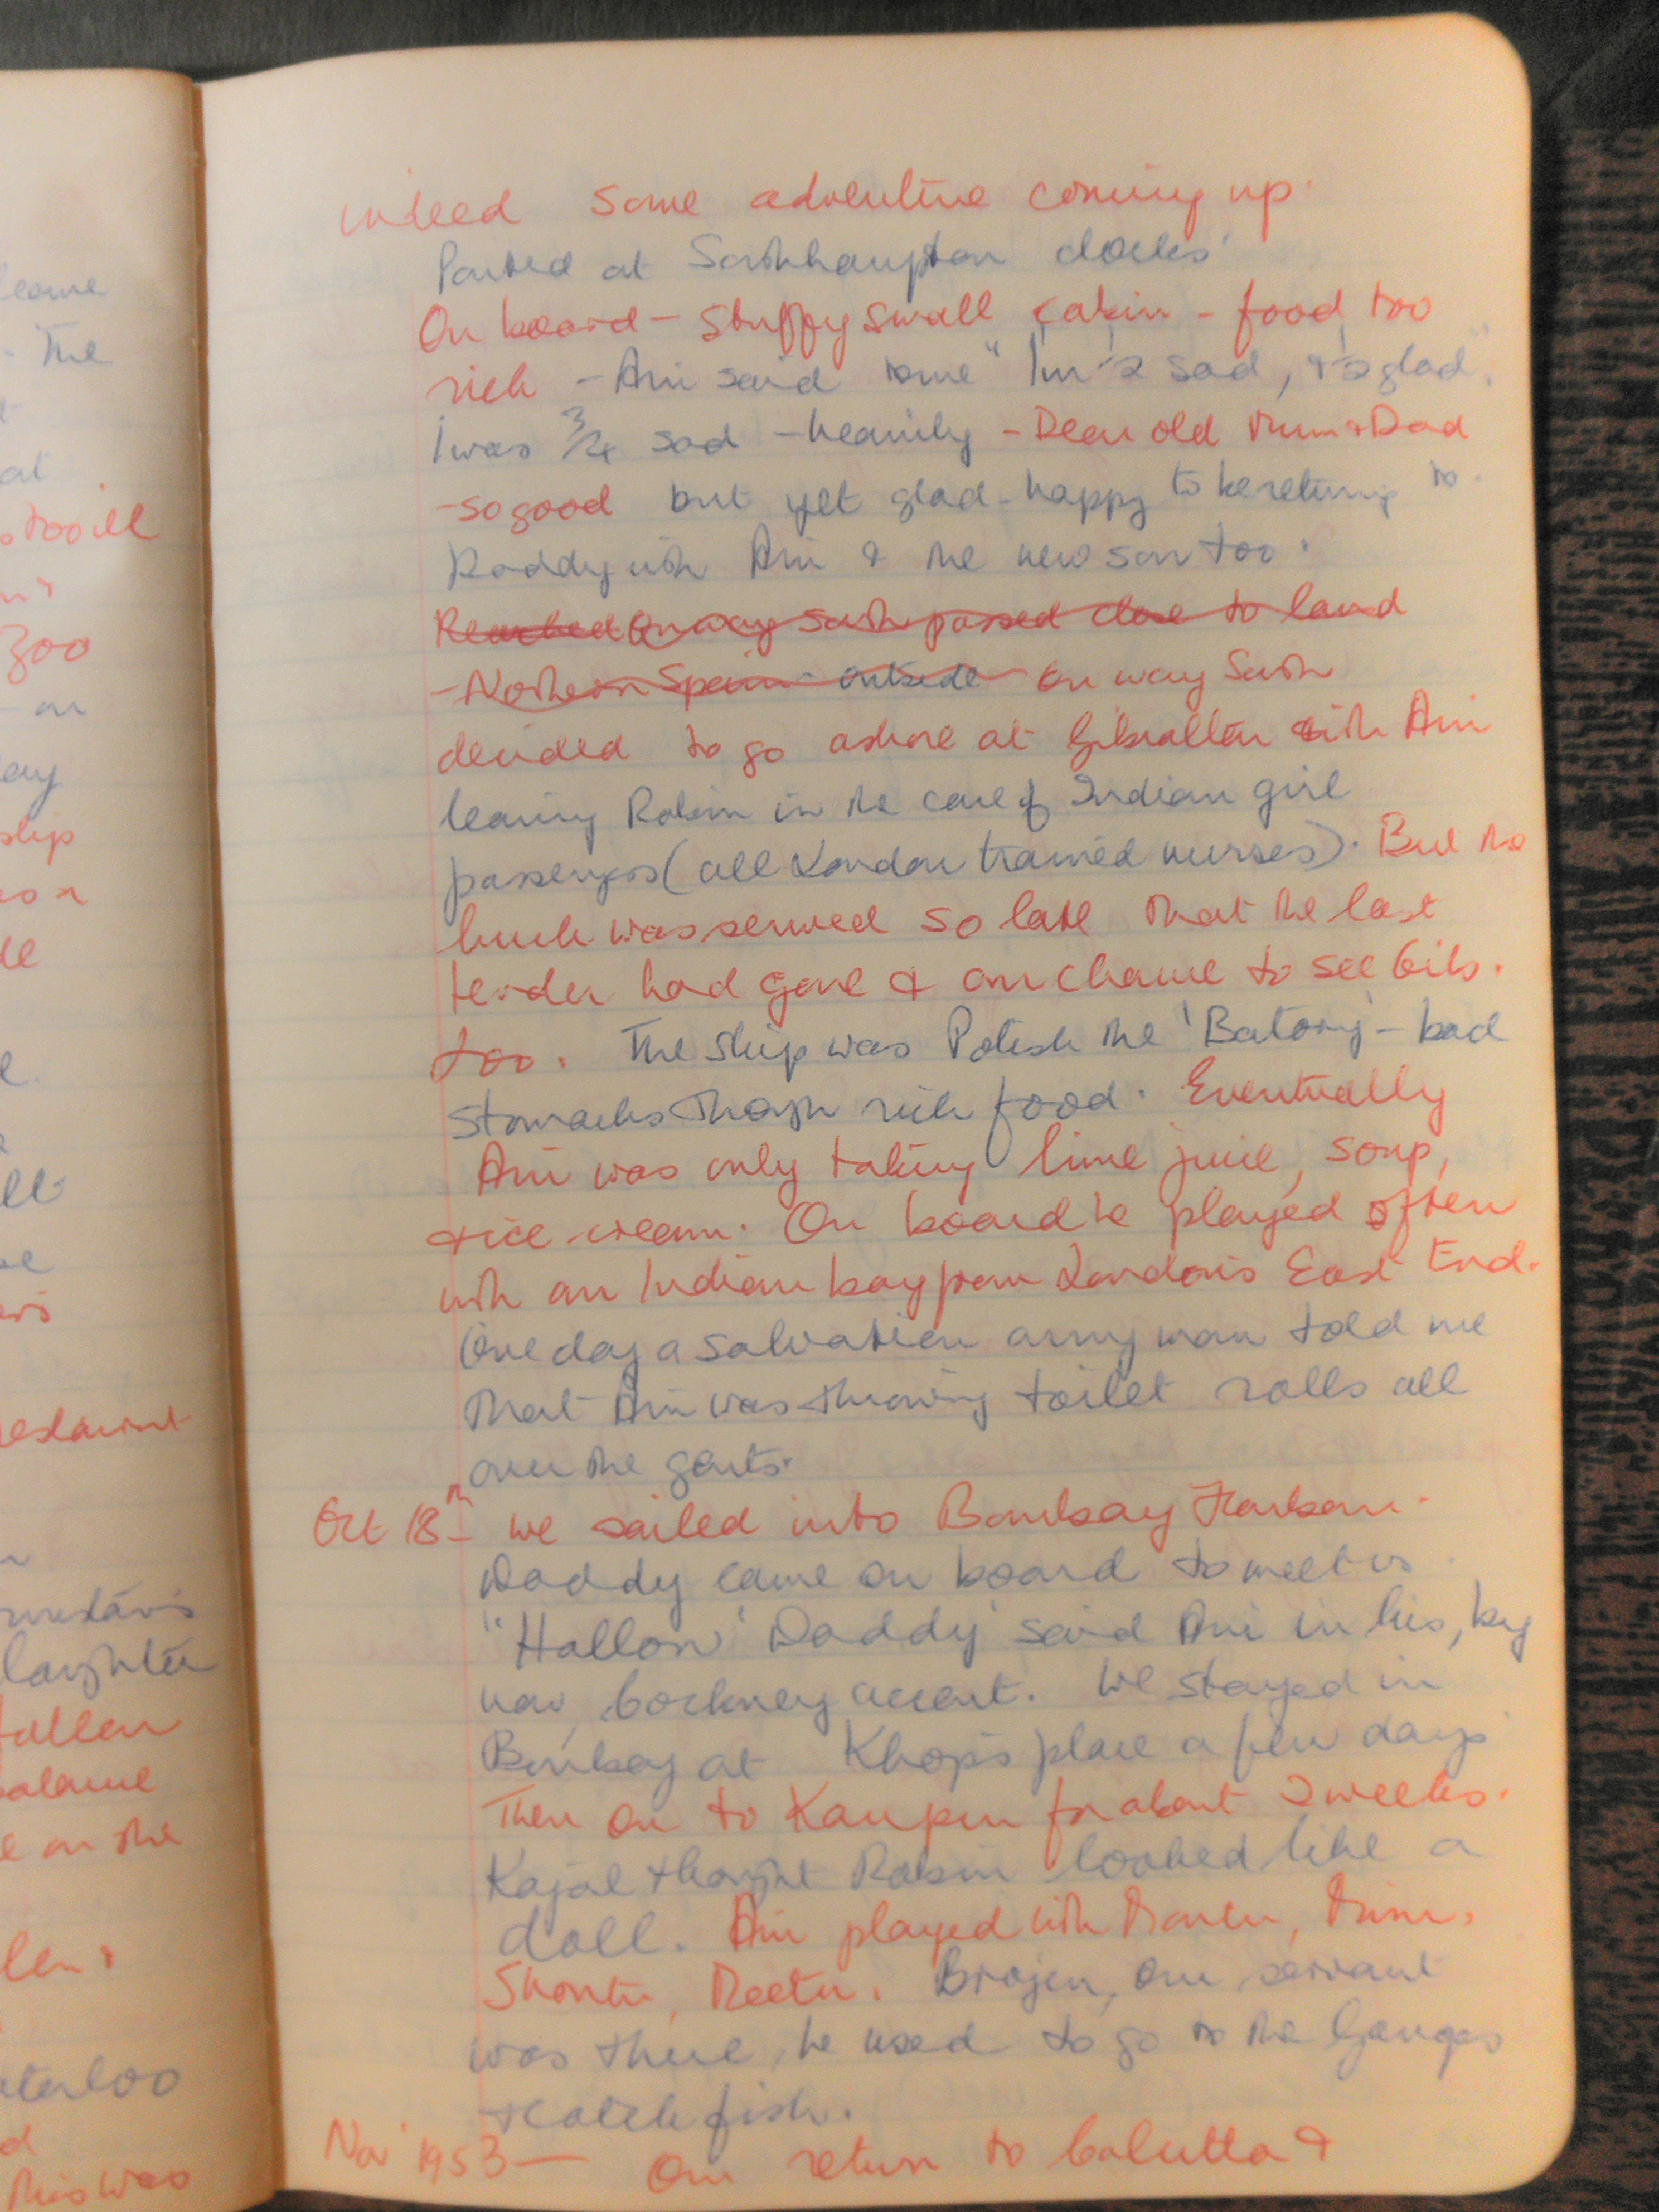 leave
The
at
too ill
zoo
on
ay
ship
indeed some adventure coming up.
Parted at Southhampton docks.
On board - stuffy small cabin - food too
rich - Ani said to me "I'm ½ sad, & ½ glad".
I was ¾ sad - heavily - Dear old Mum & Dad
- so good but yet glad - happy to be returning to
Daddy with Ani & the new son too.
Reached On way South passed close to land
- Northern Spain - outside On way South
decided to go ashore at Gibralter with Ani
leaving Robin in the care of Indian girl
passengers (all London trained nurses). But the
lunch was served so late that the last
tender had gone & our chance to see Gib.
too. The ship was Polish the 'Batory' - bad
stomachs though rich food. Eventually
Ani was only taking lime juice, soup,
& ice-cream. On board he played often
with an Indian boy from London's East End.
One day a salvation army man told me
that Ani was throwing toilet rolls all
over the gents.
Oct 18th - We sailed into Bombay Harbour.
Daddy came on board to meet us.
"Hallow' Daddy' said Ani in his, by
now, Cockney accent. We stayed in
Bombay at place a few days
Then on to Kanpur for about 2 weeks.
Kajal thought Robin looked like a
doll. Ani played with
Brojen, our servant
was there, he used to go to the Ganges
to catch fish.
Nov 1953 - Our return to Calcutta &
laughter
fallen
balance
on the
this was